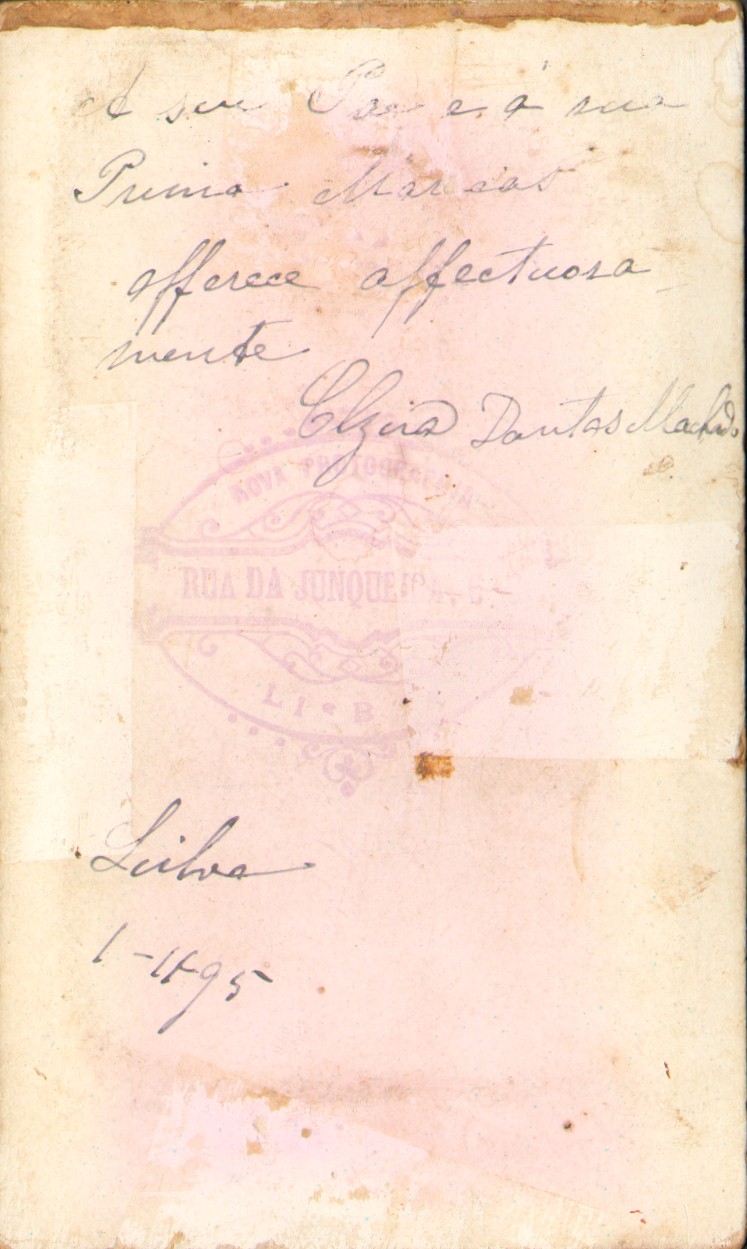 A seu Pae e á sua
Prima Marcas
offerece affectuosa
mente
Elzira Dantas Machado
NOVA PHOTOGRAPHIA
RUA DA JUNQUEIRA
LISB
1-11-95